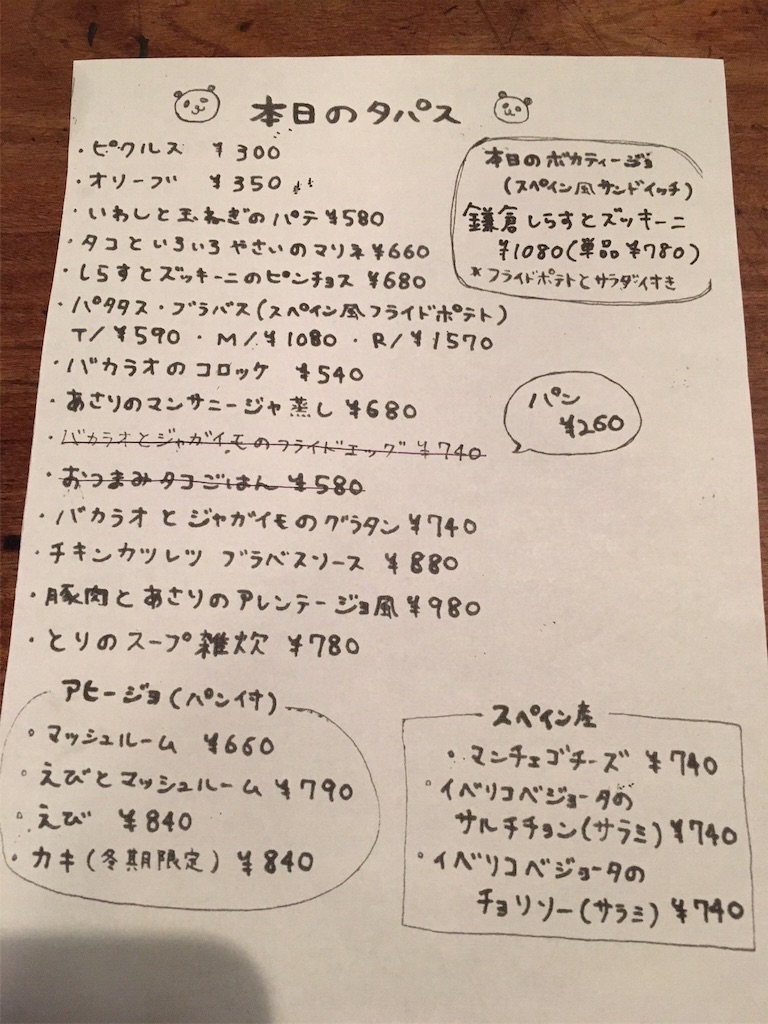 本日のタパス
・ピクルス ¥300
・オリーブ ¥350
・いわしと玉ねぎのパテ ¥580
・タコといろいろやさいのマリネ ¥660
・しらすとズッキーニのピンチョス ¥680
・パタタス・ブラバス(スペイン風フライドポテト)
T/¥590・M/¥1080・R/¥1570
・バカラオのコロッケ ¥540
・あさりのマンサニージャ蒸し ¥680
・バカラオとジャガイモのフライドエッグ ¥740
・おつまみタコごはん ¥580
・バカラオとジャガイモのグラタン ¥740
・チキンカツレツ ブラベスソース ¥880
・豚肉とあさりのアレンテージョ風 ¥980
・とりのスープ雑炊 ¥780
本日のボカディージョ
(スペイン風サンドイッチ)
鎌倉しらすとズッキーニ
¥1080(単品¥780)
*フライドポテトとサラダ付き
パン
¥260
アヒージョ(パン付)
・マッシュルーム ¥660
・えびとマッシュルーム ¥790
・えび ¥840
・カキ(冬期限定) ¥840
スペイン産
・マンチェゴチーズ ¥740
・イベリコベジョータの
サルチチョン(サラミ) ¥740
・イベリコベジョータの
チョリソー(サラミ) ¥740